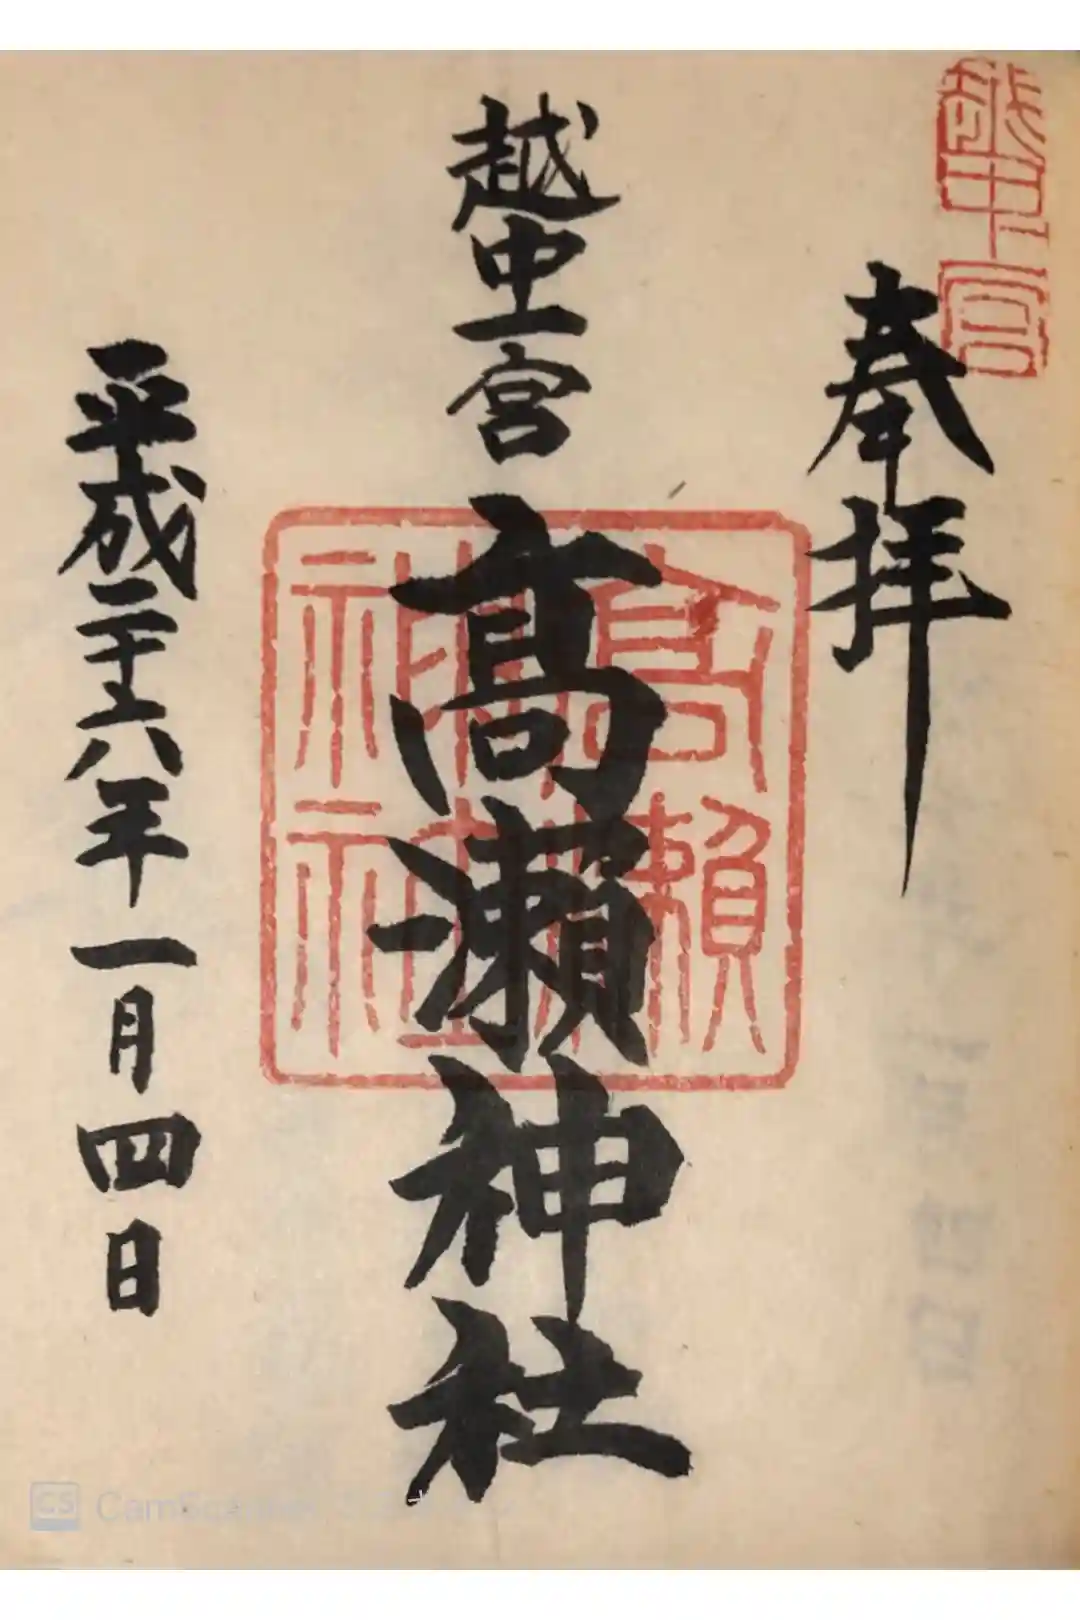 越中一宮
奉拝
越中一宮
高瀬神社
髙瀬神社
平成二十六年一月四日
CS CamScanner